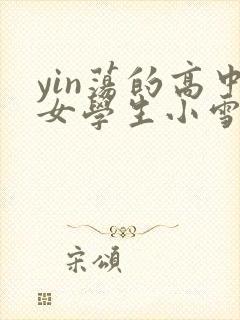 yin蕩的高中
女學生小雪
宋頌